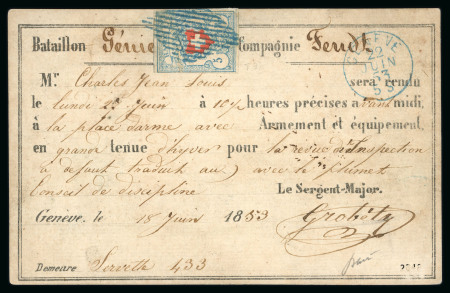 Bataillon Génie Compagnie Fendt
GENÈVE
22
JUIN
53
Mr. Charles Jean Louis sera rendu
le lundi 2 Juin à 10 1/2 heures précises à avant midi,
à la place d'arme avec Armement et équipement,
en grande tenue d'hyver pour la revue d'Inspection
à défaut traduit au avec le plumet
Conseil de discipline Le Sergent-Major.
Genève, le 18 Juin 1853 Grobéty
Demeure Servette 433